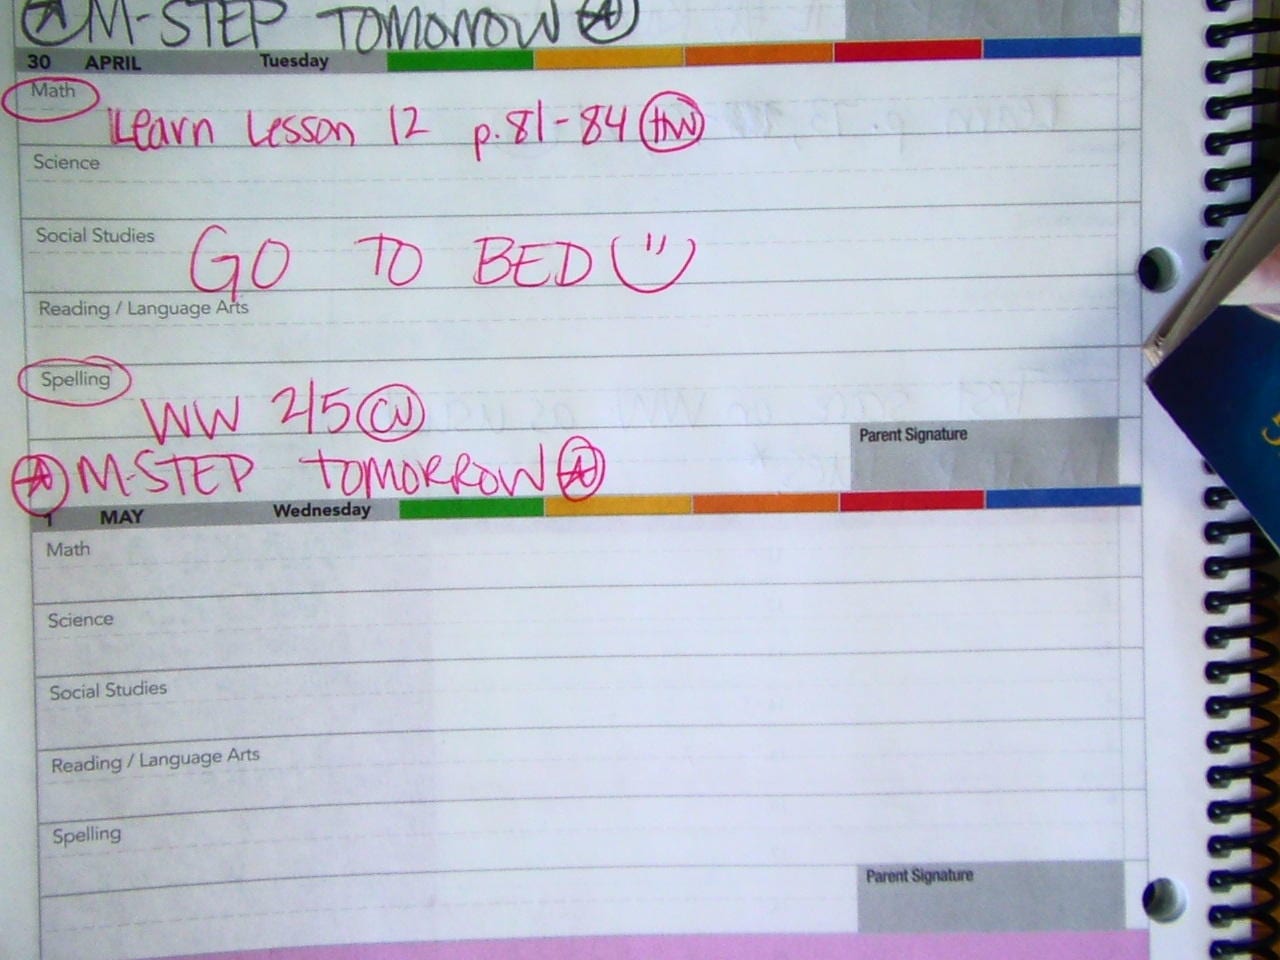 M-STEP TOMORROW
30 APRIL Tuesday
Math
Learn Lesson 12 p.81-84 HW
Science
Social Studies
GO TO BED
Reading / Language Arts
Spelling
WW 2/5 CW
Parent Signature
M-STEP TOMORROW
1 MAY Wednesday
Math
Science
Social Studies
Reading / Language Arts
Spelling
Parent Signature